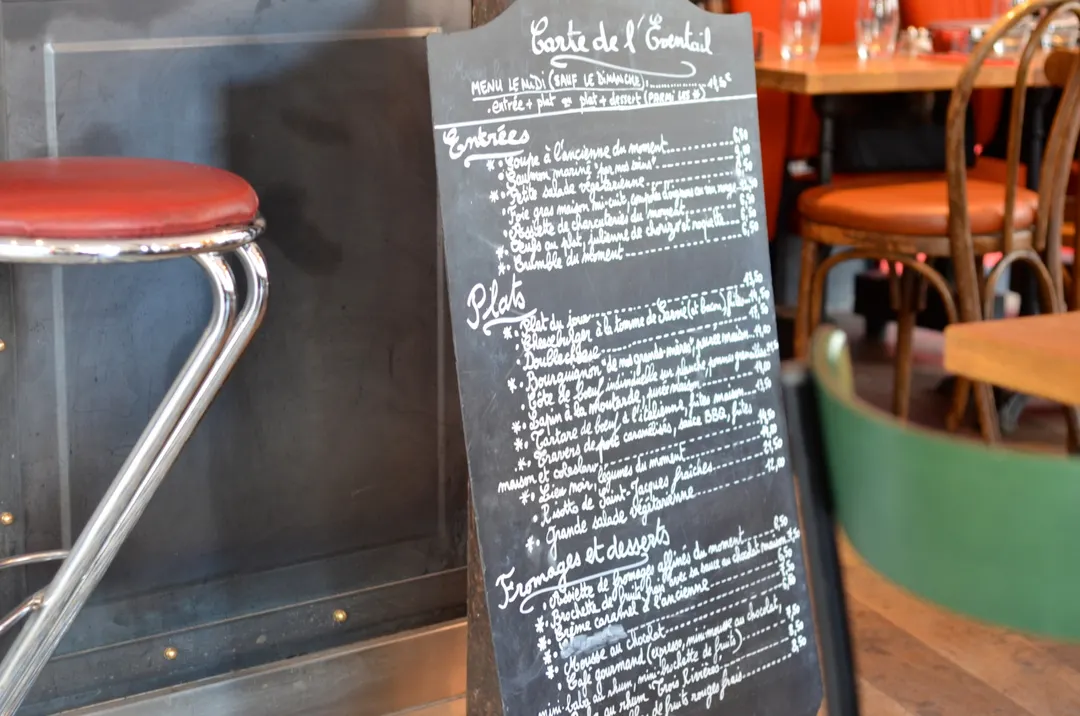 Carte de l'Eventail
MENU LE MIDI (SAUF LE DIMANCHE)
entrée + plat ou plat + dessert (PARMI LES *)
Entrées
* • Soupe à l'ancienne du moment
• Saumon mariné "par nos soins"
* • Petite salade végétarienne
• Foie gras maison mi-cuit, compotée d'oignons au vin rouge
• Assiette de charcuteries du moment
* • Oeufs au plat, julienne de chorizo et roquette
* • Crumble du moment 6,50
Plats
* • Plat du jour 13,50
• Cheeseburger à la tomme de Savoie (et bacon), frites
Doublecheese
* • Bourguignon "de nos grands-mères", purée maison
• Côte de boeuf individuelle sur planche, pommes grenailles
* • Lapin à la moutarde, purée maison
• Tartare de boeuf à l'italienne, frites maison
* • Travers de porc caramélisés, sauce BBQ, frites
maison et coleslaw
* • Lieu noir, légumes du moment
• Risotto de Saint-Jacques fraîches
* • Grande salade végétarienne 12,00
Fromages et desserts
• Assiette de fromages affinés du moment
* • Brochette de fruits frais avec sa sauce au chocolat maison
* • Crème caramel à l'ancienne
* • Mousse au chocolat
• Café gourmand (expresso, mini-mousse au chocolat,
mini-baba au rhum, mini-brochette de fruits)
au rhum "Trois Rivières"
de fruits rouges frais